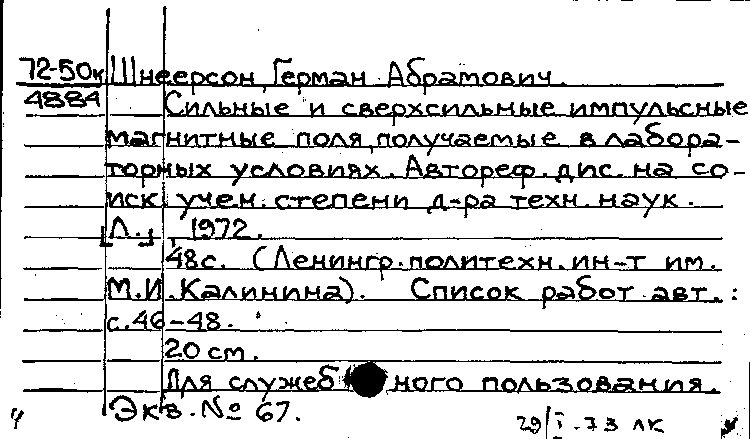 72-50к Шнеерсон, Герман Абрамович.
4884 Сильные и сверхсильные импульсные
магнитные поля, получаемые в лабора-
торных условиях. Автореф. дис. на со-
иск. учен. степени д-ра техн. наук.
[Л.], 1972.
48 с. (Ленингр. политехн. ин-т им.
М.И. Калинина). Список работ авт.:
с. 46-48.
20 см.
Для служебного пользования.
Экз. № 67.
29/I-73 лк